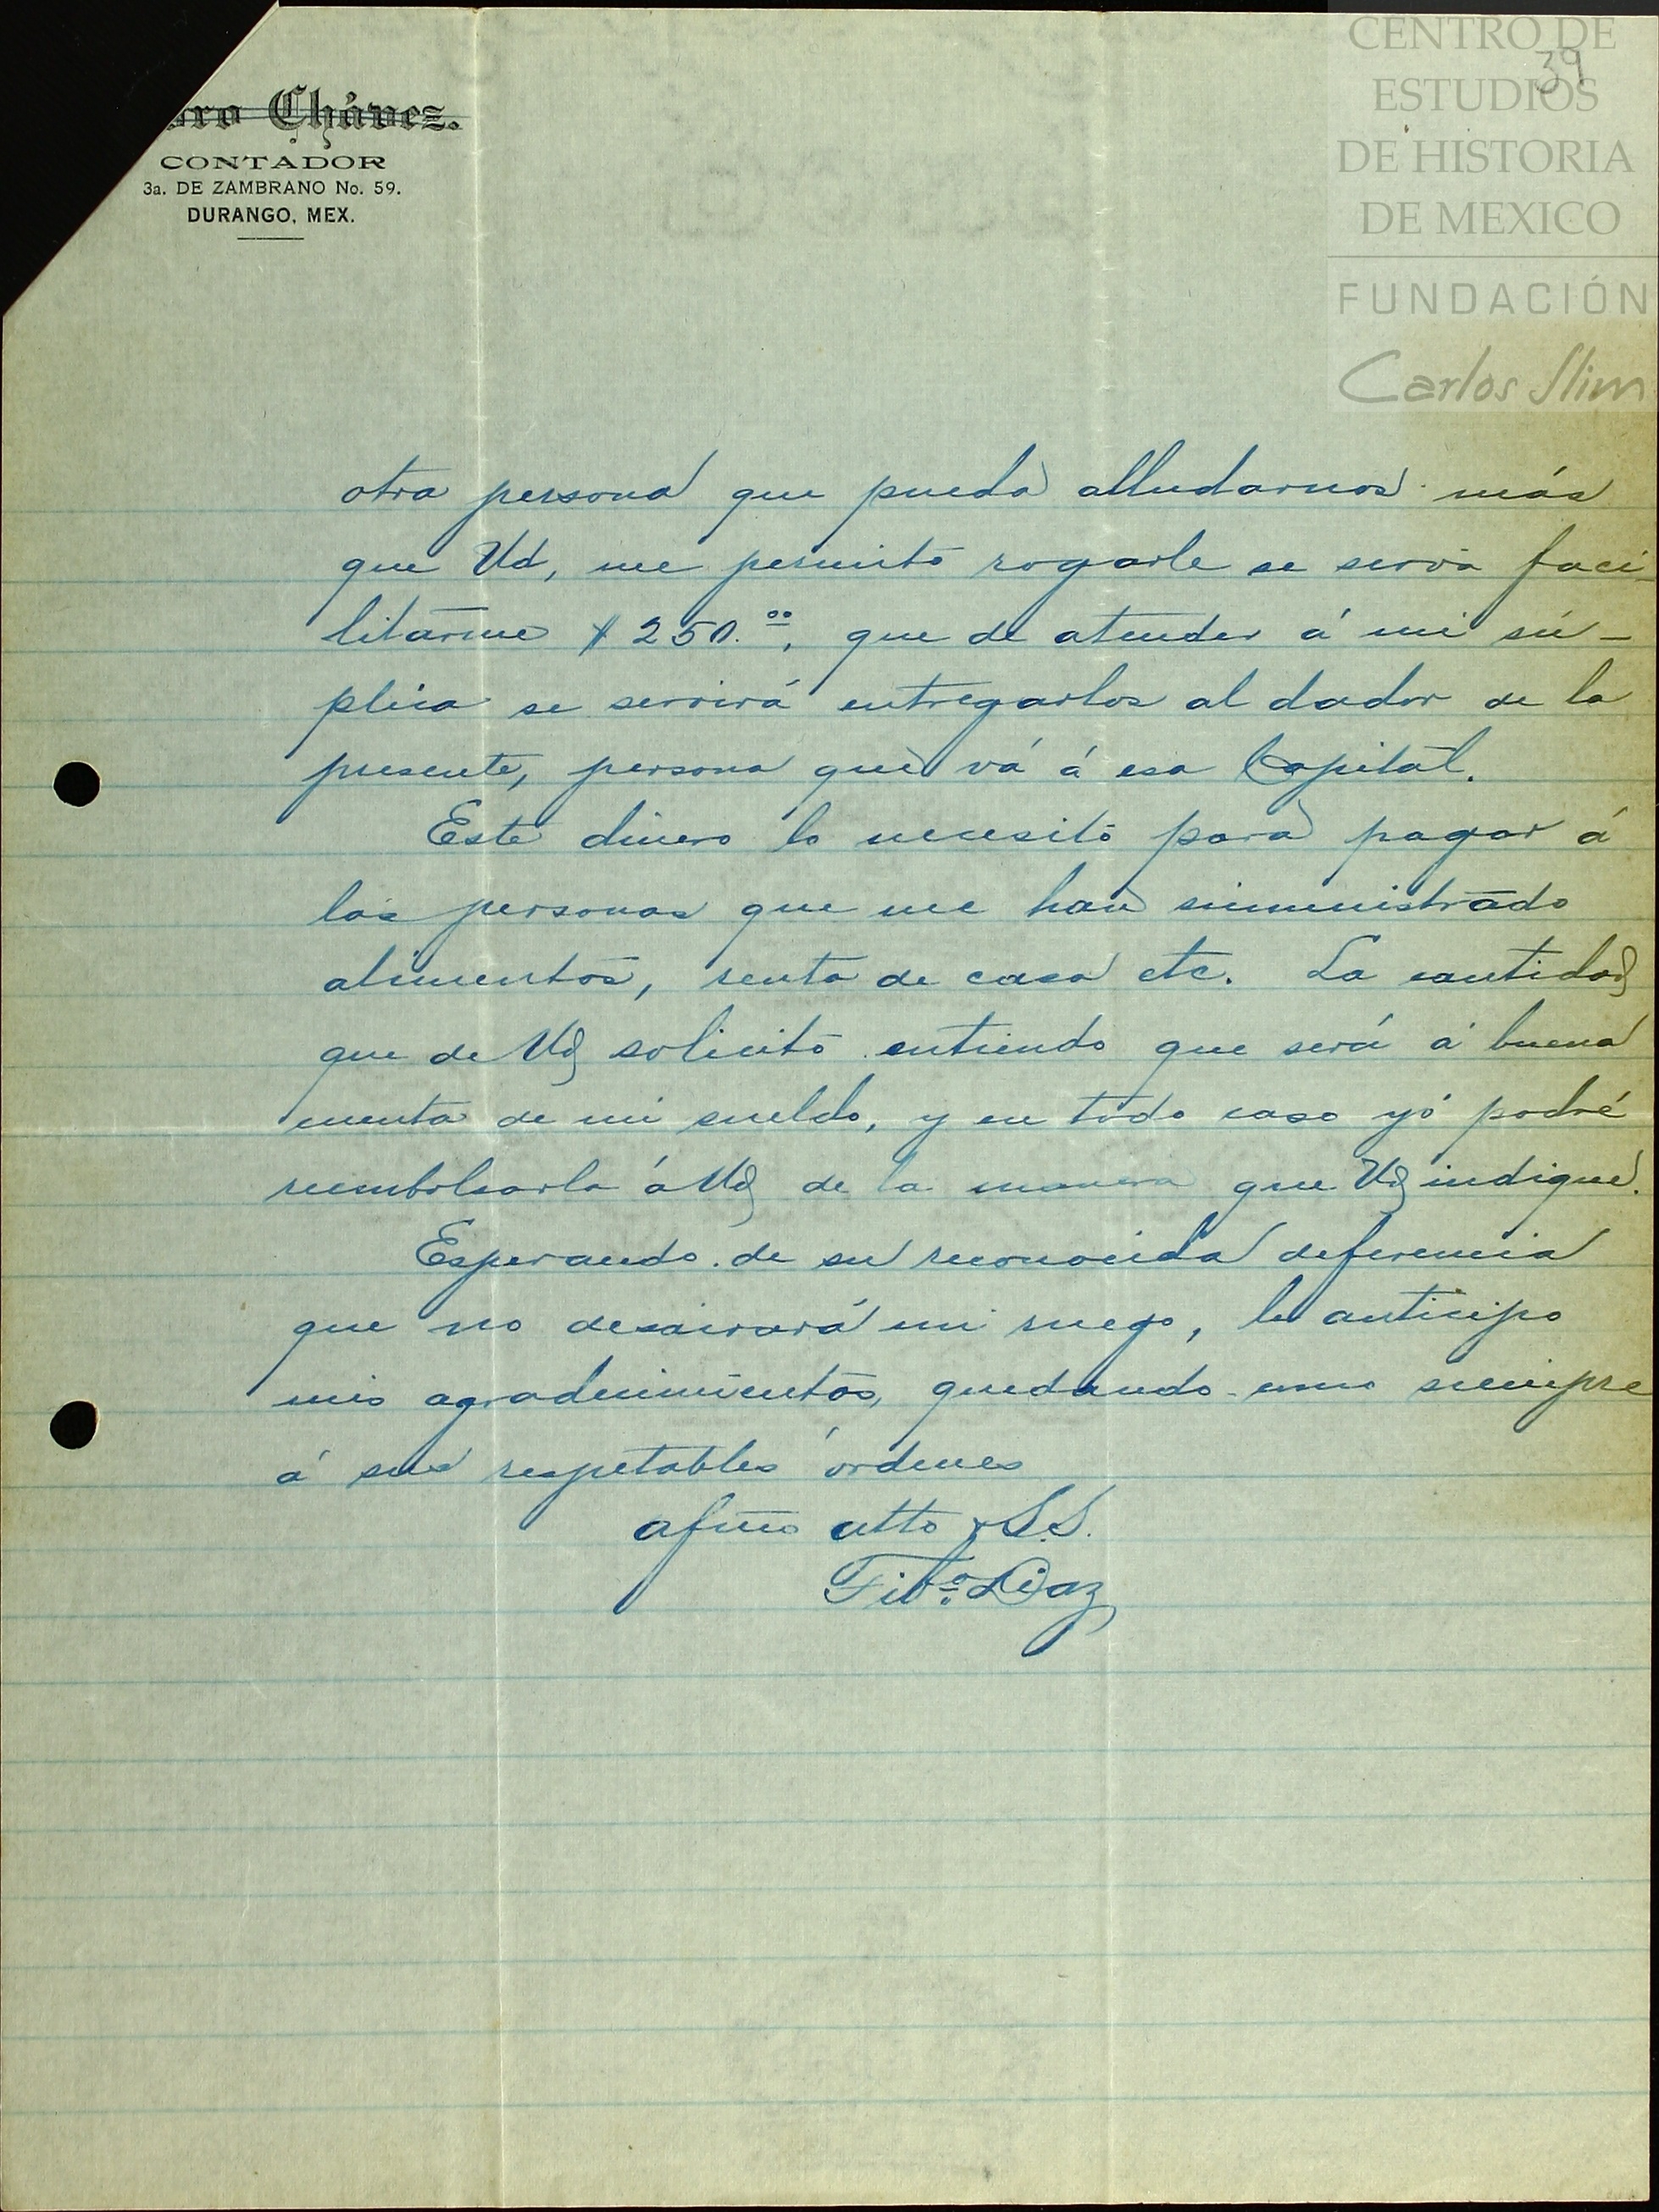 39
CENTRO DE
ESTUDIOS
DE HISTORIA
DE MEXICO
FUNDACIÓN
Carlos Slim
Chávez.
CONTADOR
3a. DE ZAMBRANO No. 59.
DURANGO, MEX.
otra persona que pueda alludarnos más
que Vd, me permito rogarle se serva faci-
litarme $250.00, que de atender á mi sú-
plica se servirá entregarlos al dador de la
presente, persona que vá á esa Capital.
Este dinero lo necesito para pagar á
las personas que me han suministrado
alimentos, renta de casa etc. La cantidad
que de Vd solicito entiendo que será á buena
cuenta de mi sueldo, y en todo caso yó podré
reembolsarla á Vd de la manera que Vd indique.
Esperando de su reconocida deferencia
que no desairará mi ruego, le anticipo
mis agradecimientos, quedando como siempre
á sus respetables órdenes
afmo atto y S.S.
Tibo. Diaz